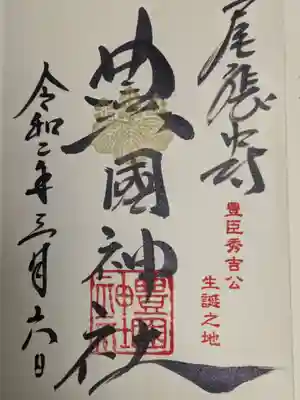 尾張中村
豊臣秀吉公
生誕之地
豊國神社
豊国神社
令和二年三月十六日